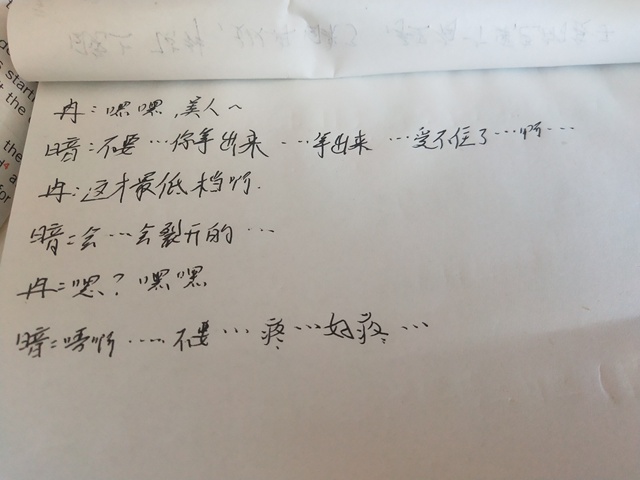 冉:嘿嘿,美人~
暗:不要…你拿出来…拿出来…受不住了…啊…
冉:这才最低档啊.
暗:会…会裂开的…
冉:嗯?嘿嘿
暗:唔啊……不要…疼…好疼…